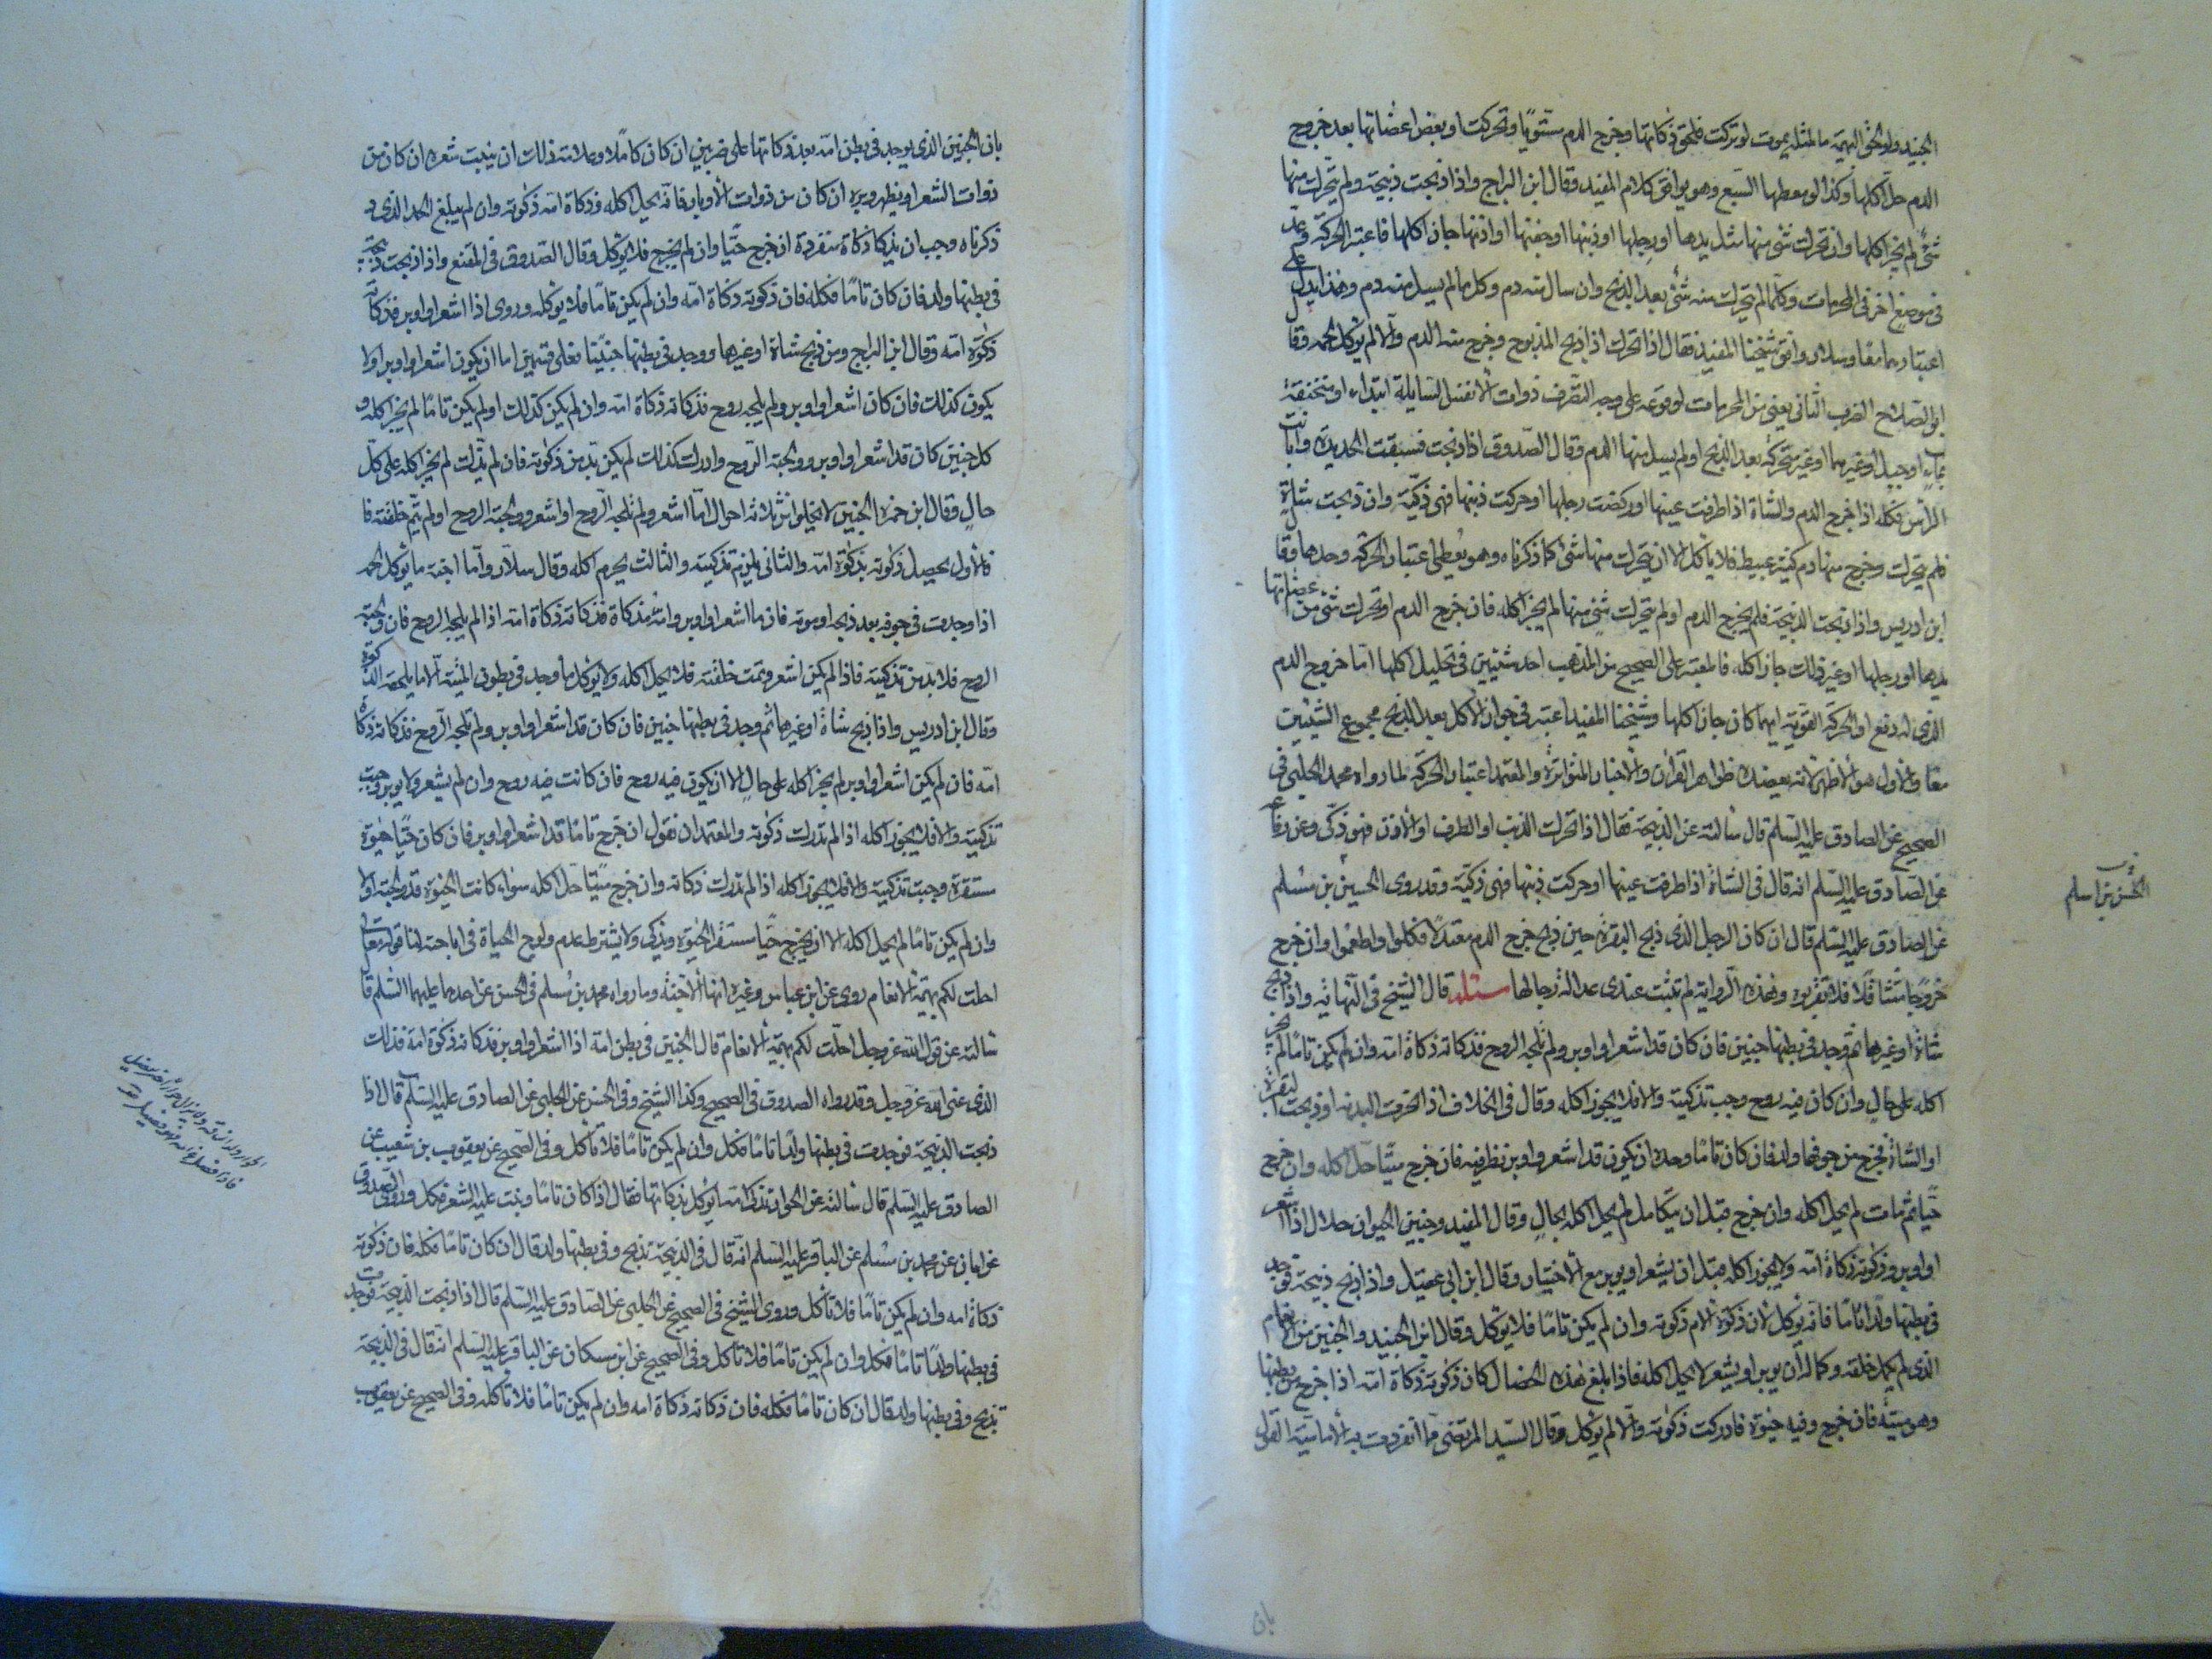 الجنيد ولو لحق البهيمة ما لمثله يموت لو تركت فلحق ذكاتها وخرج الدم مستويا وتحركت او بعض اعضائها بعد خروج
الدم حل اكلها وكذا لو معطها السبع وهو يوافق كلام المفيد وقال ابن البراج واذا ذبحت ذبيحة ولم يتحرك منها
شئ لم يجز اكلها وان تحرك شئ منها مثل يدها او رجلها او ذنبها او جفنها او اذنها جاز اكلها فاعتبر الحركة وعد
في موضع اخر في المحرمات وكلما لم يتحرك منه شئ بعد الذبح وان سال منه دم وكل ما لم يسيل منه دم وهذا يدل على
اعتبارهما معا وسلار وافق شيخنا المفيد فقال اذا تحرك اذا ذبح المذبوح وخرج منه الدم والا لم يؤكل لحمه وقال
ابو الصلاح الضرب الثاني يعني من المحرمات لوقوعه على وجه التصرف ذوات الانفس السايلة ابتداء او منخنقة
بماء او جبل او غيرهما او غير متحركه بعد الذبح او لم يسيل منها الدم وقال الصدوق اذا ذبحت فسبقت الحديدة وابانت
الراس فكله اذا خرج الدم والشاة اذا طرفت عينها او ركضت رجلها او حركت ذنبها فهي ذكية وان ذبحت شاة
فلم يتحرك وخرج منها دم كثير عبيط فلا ياكل الا ان يتحرك منها شئ كما ذكرناه وهو يعطي اعتبار الحركة وحدها وقال
ابن ادريس واذا ذبحت الذبيحة فلم يخرج الدم او لم يتحرك شئ منها لم يجز اكله فان خرج الدم او تحرك شئ من اعضائها
يدها او رجلها او غير ذلك جاز اكله فالمعتبر على الصحيح من المذهب احد شيئين في تحليل اكلها اما خروج الدم
الذي له دفع او الحركة القوية ايهما كان جاز اكلها وشيخنا المفيد اعتبر في جواز الاكل بعد الذبح مجموع الشيئين
معا والاول هو الاظهر لانه يعضده ظواهر القران والاخبار المتواترة والمعتمد اعتبار الحركة لما رواه محمد الحلبي في
الصحيح عن الصادق عليه السلم قال سالته عن الذبيحة فقال اذا تحرك الذنب او الطرف او الاذن فهو ذكي وعن رفاعه
عن الصادق عليه السلم انه قال في الشاة اذا طرفت عينها او حركت ذنبها فهي ذكية وقد روى الحسين بن مسلم
عن الصادق عليه السلم قال ان كان الرجل الذي ذبح البقرة حين ذبح خرج الدم معتدلا فكلوا واطعموا وان خرج
خروجا متثاقلا فلا تقربوه وهذه الرواية لم تثبت عندي عدالة رجالها مسئلة قال الشيخ في النهاية واذا ذبح
شاة او غيرها ثم وجد في بطنها جنين فان كان قد اشعر او اوبر ولم تلجه الروح فذكاته ذكاة امه وان لم يكن تاما لم يجز
اكله على حال وان كان فيه روح وجب تذكيته والا فلا يجوز اكله وقال في الخلاف اذا نحرت البدنه او ذبحت البقرة
او الشاة فخرج من جوفها ولد فان كان تاما وحده ان يكون قد اشعر او اوبر نظر فيه فان خرج ميتا حل اكله وان خرج
حيا ثم مات لم يحل اكله وان خرج قبل ان يتكامل لم يحل اكله بحال وقال المفيد وجنين الحيوان حلال اذا اشعر
او اوبر وذكوته ذكاة امه ولا يجوز اكله قبل ان يشعر او يوبر مع الاختيار وقال ابن ابي عقيل واذا ذبح ذبيحة فوجد
في بطنها ولدا تاما فانه يؤكل لان ذكوة الام ذكوته وان لم يكن تاما فلا يؤكل وقال ابن الجنيد والجنين من الانعام
الذي لم يكمل خلقه وكماله ان يوبر او يشعر لا يحل اكله فاذا بلغ هذه الخصال كان ذكوته ذكاة امه اذا خرج من بطنها
وهو ميته فان خرج وفيه حيوة فادركت ذكوته والا لم يؤكل وقال السيد المرتضى مما انفردت به الامامية القول
الحسن بن اسلم
بان
بان الجنين الذي يوجد في بطن امه بعد ذكاتها على ضربين ان كان كاملا وعلامة ذلك ان ينبت شعره ان كان من
ذوات الشعر او يظهر وبره ان كان من ذوات الاوبار فانه يحل اكله وذكاة امه ذكوته وان لم يبلغ الحد الذي
ذكرناه وجب ان يذكا ذكاة منفردة ان خرج حيا وان لم يخرج فلا يؤكل وقال الصدوق في المقنع واذا ذبحت ذبيحة
في بطنها ولد فان كان تاما فكله فان ذكوته ذكاة امه وان لم يكن تاما فلا يؤكله وروى اذا اشعر او اوبر فذكاته
ذكوة امه وقال ابن البراج ومن ذبح شاة او غيرها ووجد في بطنها جنينا فعلى قسمين اما ان يكون اشعر او اوبر او لا
يكون كذلك فان كان اشعر او اوبر ولم يلجه روح فذكاته ذكاة امه وان لم يكن كذلك او لم يكن تاما لم يجز اكله و
كل جنين كان قد اشعر او اوبر وولجته الروح وادرك كذلك لم يكن بد من ذكوته فان لم يذك لم يجز اكله على كل
حال وقال ابن حمزة الجنين لا يخلو من ثلاثه احوال اما اشعر ولم تلجه الروح او اشعر وولجته الروح او لم يتم خلقته فا
فالاول يحصل ذكوته بذكوة امه والثاني يلزم تذكيته والثالث يحرم اكله وقال سلار واما اجنه ما يؤكل لحمه
اذا وجدت في جوفه بعد ذبحه او موته فان ما اشعر او اوبر وامه مذكاة فذكاته ذكاة امه اذا لم يلجه الروح فان ولجته
الروح فلا بد من تذكيته فاذا لم يكن اشعر وتمت خلقته فلا يحل اكله ولا يؤكل ما وجد في بطون الميتة الا ما يلحقه الذكوة
وقال ابن ادريس واذا ذبح شاة او غيرها ثم وجد في بطنها جنين فان كان قد اشعر او اوبر ولم تلجه الروح فذكاته ذكاة
امه فان لم يكن اشعر او اوبر لم يجز اكله على حال الا ان يكون فيه روح فان كانت فيه روح وان لم يشعر ولا يوبر وجبت
تذكيته والا فلا يجوز اكله اذا لم تدرك ذكوته والمعتمد ان نقول ان خرج تاما قد اشعر او اوبر فان كان حيا حيوة
مستقرة وجبت تذكيته والا فلا يجوز اكله اذا لم تدرك ذكاته وان خرج ميتا حل اكله سواء كانت الحيوة قد ولجته او لا
وان لم يكن تاما لم يحل اكله الا ان يخرج حيا مستقر الحيوة ويذكى ولا يشترط عدم ولوج الحياة في اباحته لنا قوله تعالى
احلت لكم بهيمة الانعام روى عن ابن عباس وغيره انها الاجنة وما رواه محمد بن مسلم في الحسن عن احدهما عليهما السلم قال
سالته عن قول الله عز وجل احلت لكم بهيمة الانعام قال الجنين في بطن امه اذا اشعر او اوبر فذكاته ذكوة امه فذلك
الذي عنى الله عز وجل وقد رواه الصدوق في الصحيح وكذا الشيخ وفي الحسن عن الحلبي عن الصادق عليه السلم قال اذا
ذبحت الذبيحة فوجدت في بطنها ولدا تاما فكل وان لم يكن تاما فلا تأكل وفي الصحيح عن يعقوب بن شعيب عن
الصادق عليه السلم قال سالته عن الحوار تذكى امه ايؤكل بذكاتها فقال اذا كان تاما ونبت عليه الشعر فكل وروى الصدوق
عن ابان عن محمد بن مسلم عن الباقر عليه السلم انه قال في الذبيحة تذبح وفي بطنها ولد قال ان كان تاما فكله فان ذكوته
ذكاة امه وان لم يكن تاما فلا تأكل وروى الشيخ في الصحيح عن الحلبي عن الصادق عليه السلم قال اذا ذبحت الذبيحة فوجدت
في بطنها ولدا تاما فكل وان لم يكن تاما فلا تاكل وفي الصحيح عن ابن مسكان عن الباقر عليه السلم انه قال في الذبيحة
تذبح وفي بطنها ولد قال ان كان تاما فكله فان ذكاته ذكاة امه وان لم يكن تاما فلا تأكله وفي الصحيح عن يعقوب
الحوار ولد الناقة ولا يزال حوارا حتى يفصل
فاذا فصل عن امه فهو فصيل